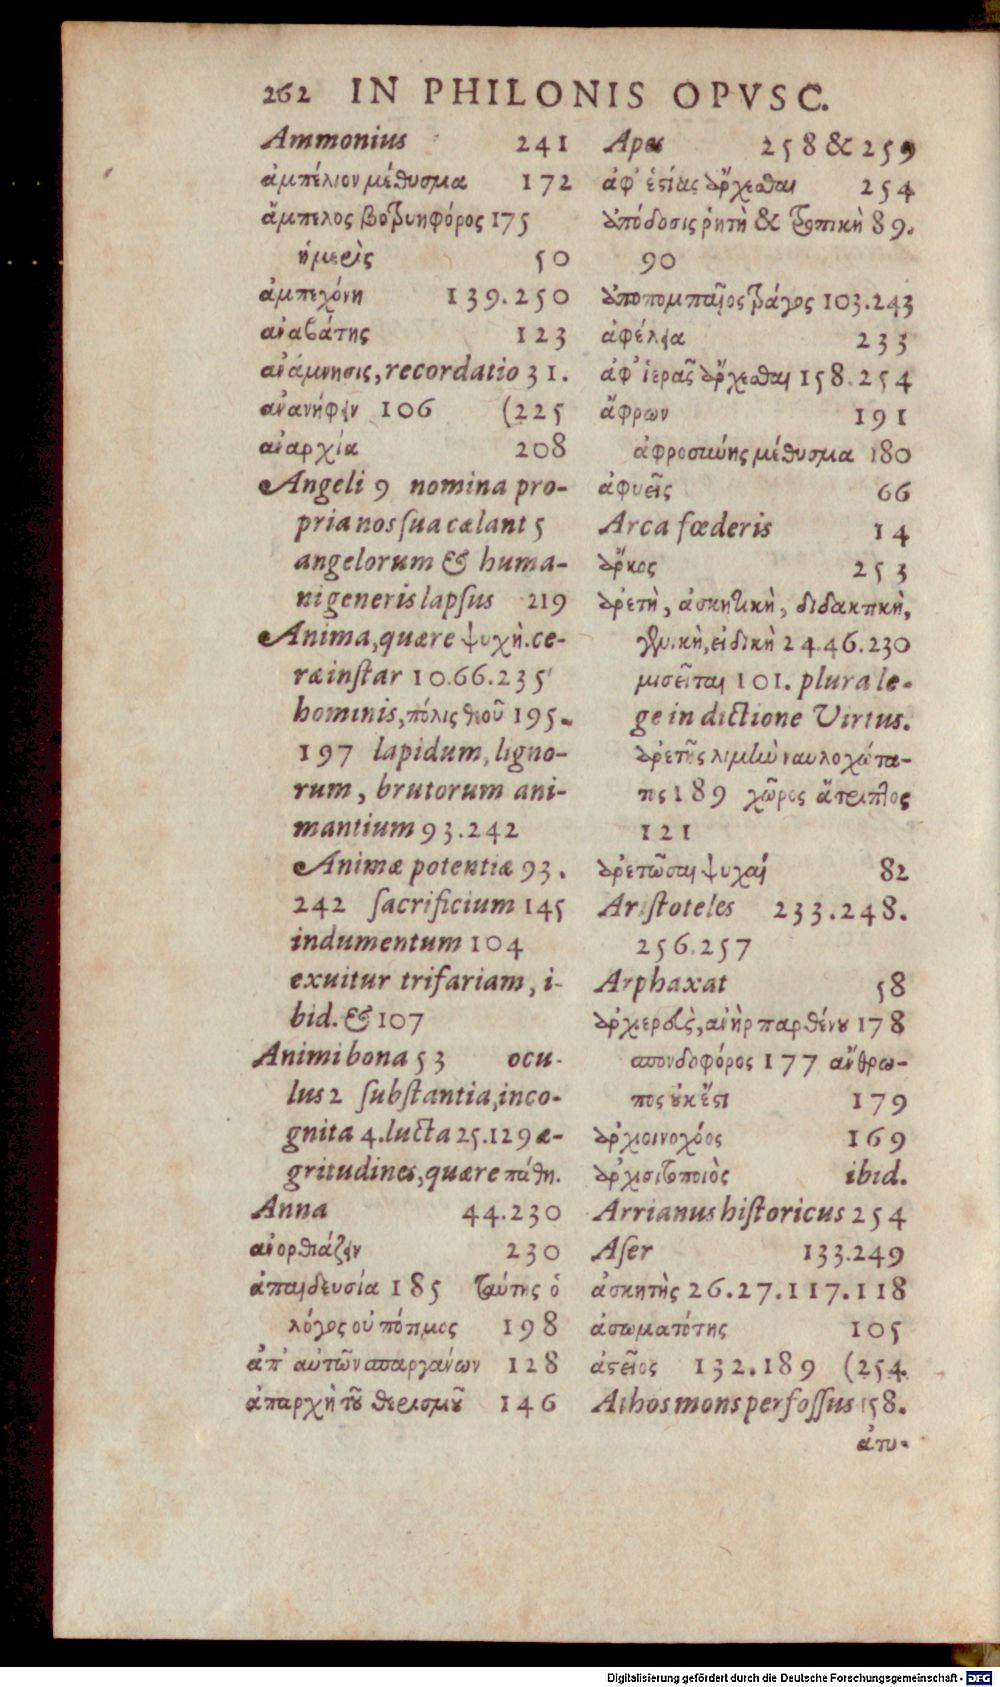 262 IN PHILONIS OPVSC.
Ammonius 241
ἀμπέλιον μέθυσμα 172
ἄμπελος βοτρυηφόρος 175
ἡμερὶς 50
ἀμπεχόνη 139.250
ἀναβάτης 123
ἀνάμνησις, recordatio 31.
ἀνανήφειν 106 (225
ἀναρχία 208
Angeli 9 nomina pro-
pria nos sua cælant 5
angelorum & huma-
ni generis lapſus 219
Anima, quære ψυχὴ. ce-
ræ inſtar 10.66.235
hominis, πόλις θεοῦ 195.
197 lapidum, ligno-
rum, brutorum ani-
mantium 93.242
Animæ potentiæ 93.
242 ſacrificium 145
indumentum 104
exuitur trifariam, i-
bid. & 107
Animi bona 53 ocu-
lus 2 ſubſtantia, inco-
gnita 4. lucta 25.129 æ-
gritudines, quære πάθη.
Anna 44.230
ἀνορθιάζειν 230
ἀπαιδευσία 185 ταύτης ὁ
λόγος οὐ πότιμος 198
ἀπ' αὐτῶν σπαργάνων 128
ἀπαρχὴ τοῦ θερισμοῦ 146
Apes 258 & 259
ἀφ' ἑστίας ἄρχεσθαι 254
ἀπόδοσις ῥητὴ & τροπικὴ 89.
90
ἀποπομπαῖος τράγος 103.243
ἀφέλεια 233
ἀφ' ἱερᾶς ἄρχεσθαι 158.254
ἄφρων 191
ἀφροσύνης μέθυσμα 180
ἀφυεῖς 66
Arca fœderis 14
ἄρκος 253
ἀρετὴ, ἀσκητικὴ, διδακτικὴ,
γενικὴ, εἰδικὴ 24.46.230
μισεῖται 101. plura le-
ge in dictione Virtus.
ἀρετῆς λιμὴν ναυλοχώτα-
τος 189 χῶρος ἄτριπτος
121
ἀρετῶσαι ψυχαὶ 82
Ariſtoteles 233.248.
256.257
Arphaxat 58
ἀρχιερεὺς, ἀνὴρ παρθένου 178
σπονδοφόρος 177 ἄνθρω-
πος οὐκ ἔστι 179
ἀρχιοινοχόος 169
ἀρχισιτοποιὸς ibid.
Arrianus hiſtoricus 254
Aſer 133.249
ἀσκητὴς 26.27.117.118
ἀσωματότης 105
ἀστεῖος 132.189 (254.
Athos mons perfoſſus 158.
ἀτυ-
Digitalisierung gefördert durch die Deutsche Forschungsgemeinschaft - DFG